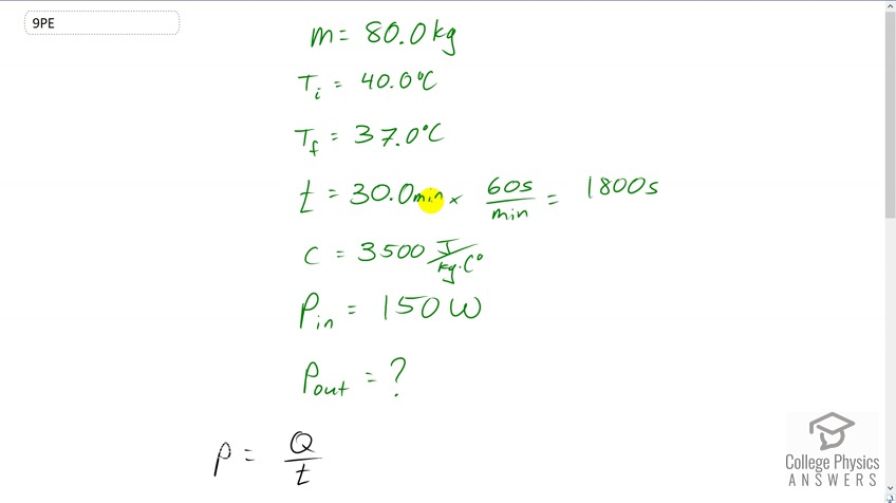 9PE
m = 80.0 kg
Ti = 40.0°C
Tf = 37.0°C
t = 30.0 min × 60s/min = 1800s
c = 3500 J/kg·C°
Pin = 150 W
Pout = ?
P = Q/t
College Physics
ANSWERS